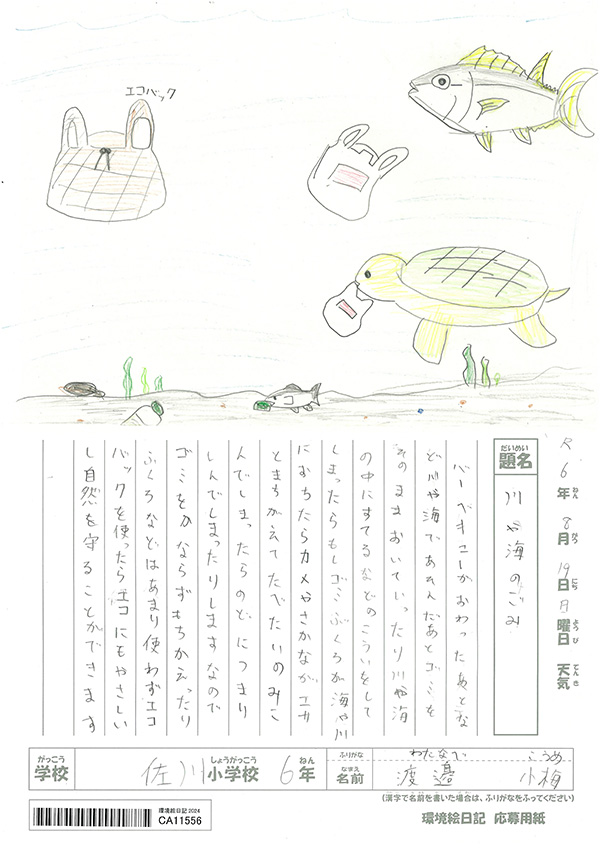 エコバック
R6年8月19日日曜日 天気
ねん がつ にち ようび てんき
だいめい
題名 川や海のごみ
バーベキューがおわったあとな
ど川や海であそんだあとゴミを
そのままおいていったり川や海
の中にすてるなどのこういをして
しまったらもしゴミぶくろが海や川
におちたらカメやさかながエサ
とまちがえてたべたいのみこ
んでしまったらのどにつまり
しんでしまったりしますなので
ゴミをかならずもちかえったり
ふくろなどはあまり使わずエコ
バックを使ったらエコにもやさしい
し自然を守ることができます
がっこう しょうがっこう ねん ふりがな わたなべ こうめ
学校 佐川小学校 6年 なまえ 名前 渡邉 小梅
(漢字で名前を書いた場合は、ふりがなをふってください)
環境絵日記2024
CA11556
環境絵日記 応募用紙